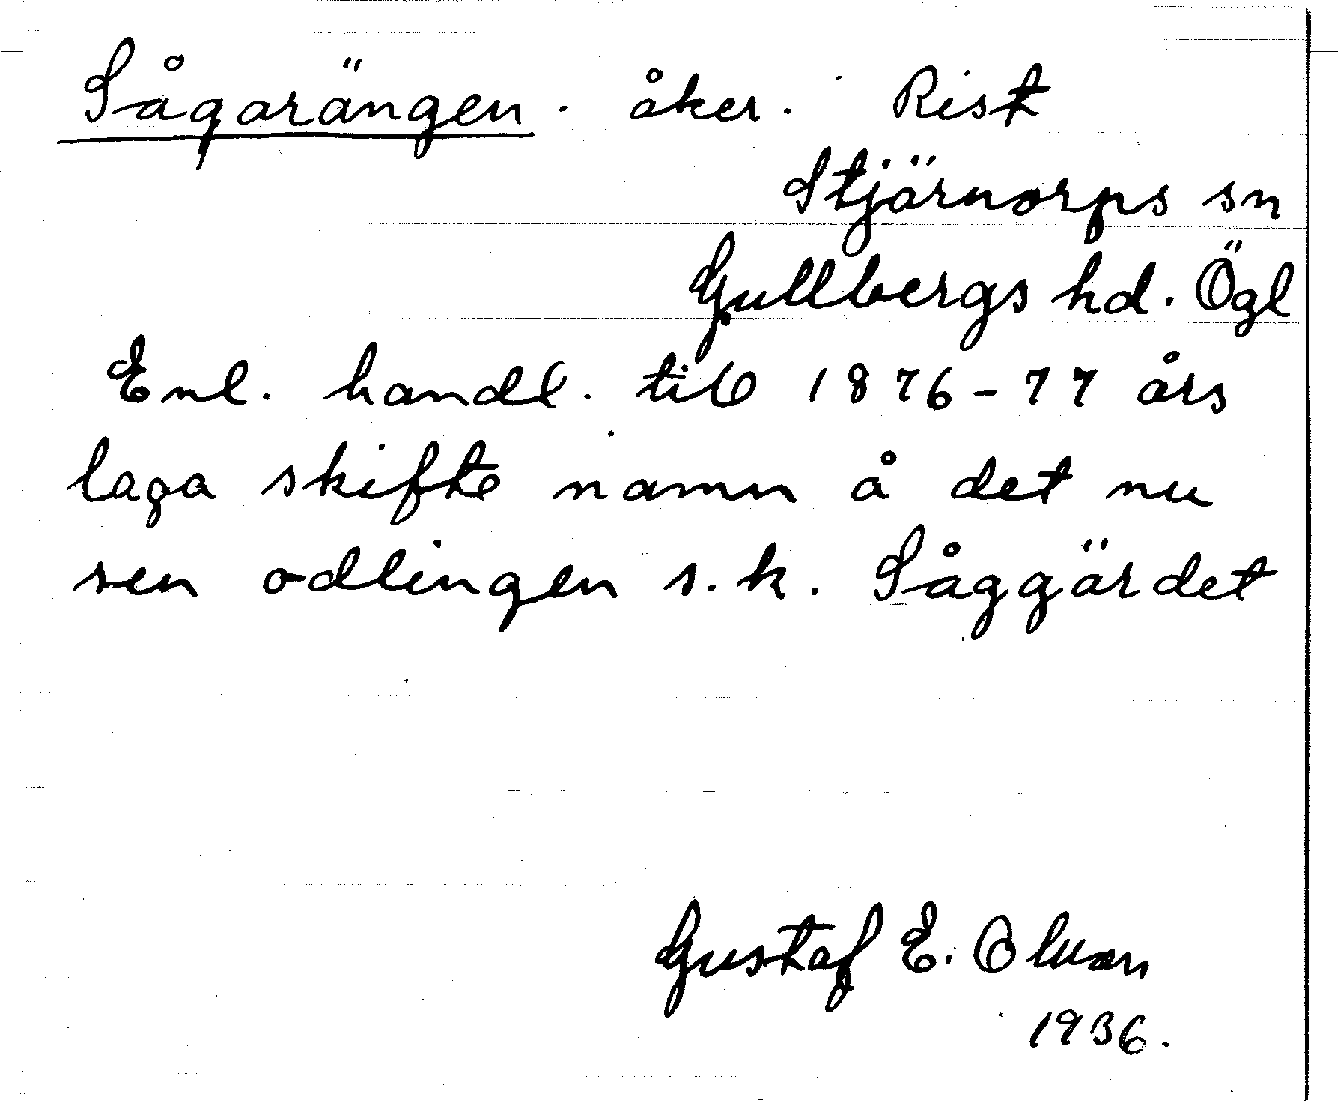 Sågarängen. åker. Rist
Stjärnorps sn
Gullbergs hd. Ögl
Enl. handl. till 1876-77 års
laga skifte namn å det nu
sen odlingen s.k. Såggärdet
Gustaf E. Olsson
1936.